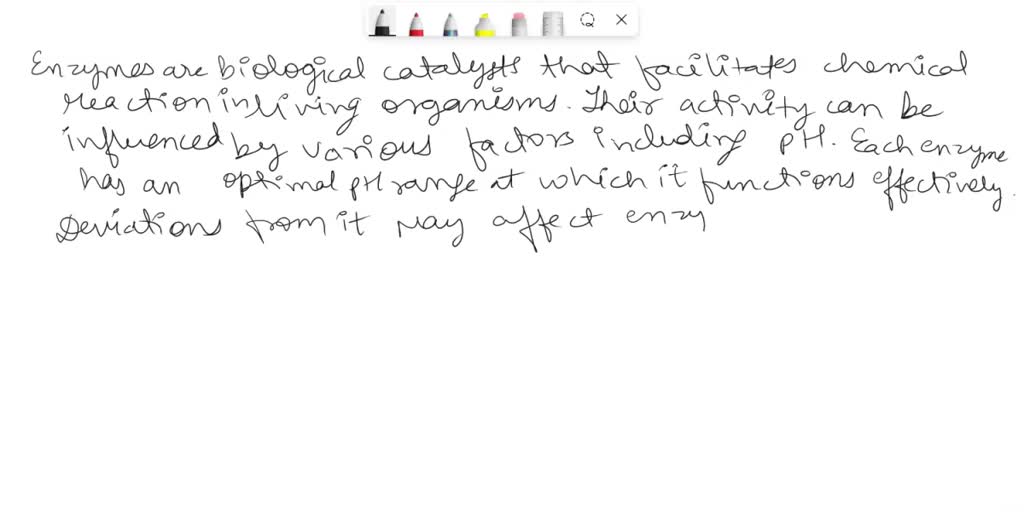 Enzymes are biological catalysts that facilitates chemical
reaction in living organisms. Their activity can be
influenced by various factors including pH. Each enzyme
has an optimal pH range at which it functions effectively.
Deviations from it may affect enzy